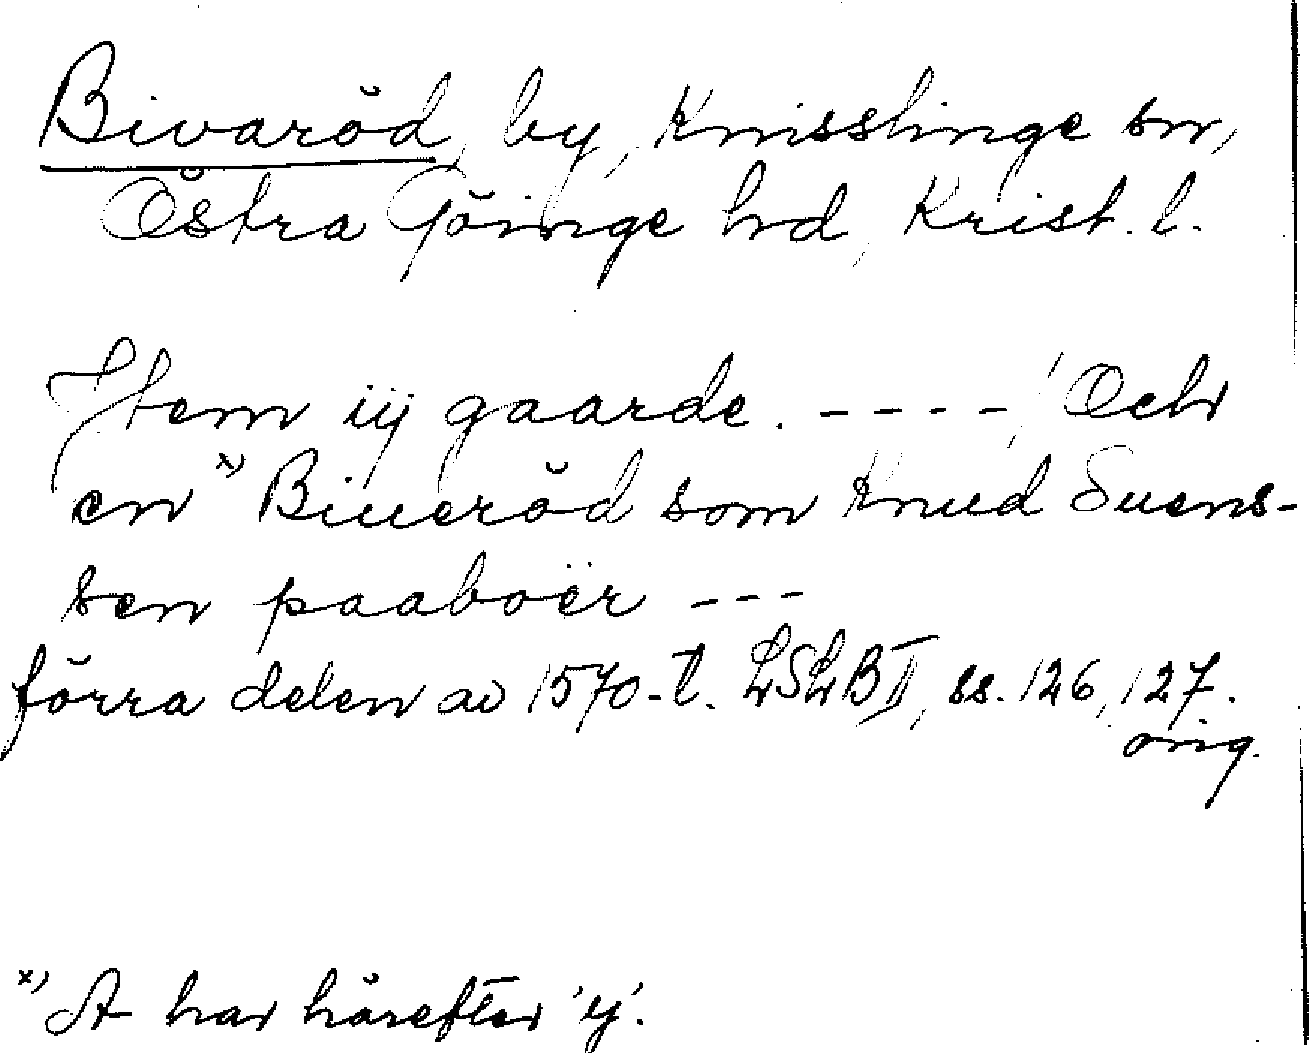 Bivaröd, by, Knisslinge sn,
Östra Göinge hd, Krist. l.
Item iij gaarde. ----, ' Och
en x) Biueröd som Knud Suens-
sen paaboër ---
förra delen av 1570-t. LSLB II, ss. 126, 127.
orig.
x) A har härefter 'ij'.